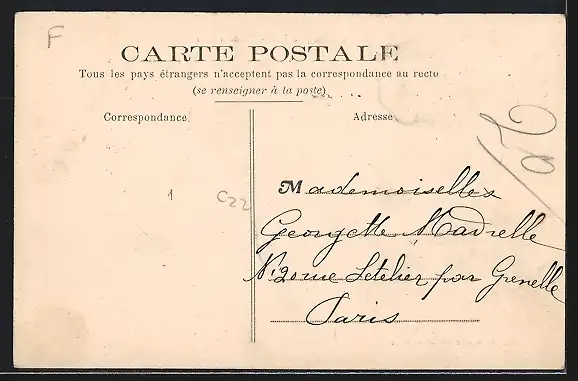 F
CARTE POSTALE
Tous les pays étrangers n'acceptent pas la correspondance au recto
(se renseigner à la poste)
Correspondance
Adresse
Mademoiselles
Georgette Madrelle
N: 20 rue Letelier par Grenelle
Paris
C22